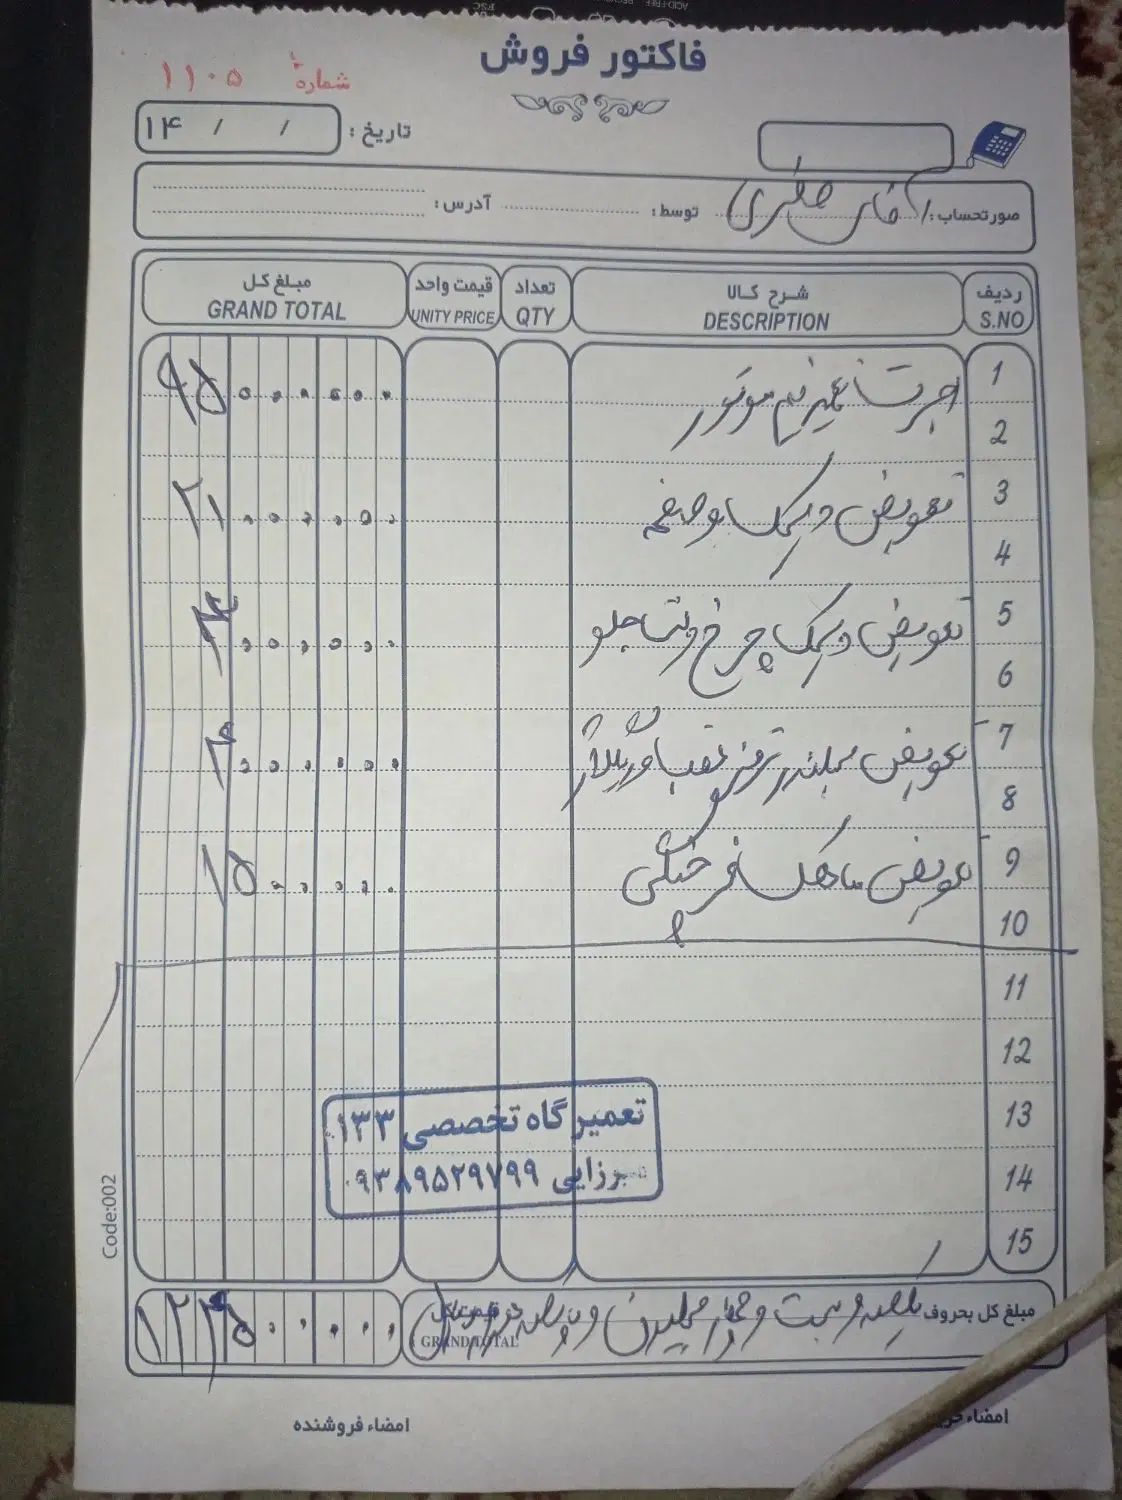 فاکتور فروش
شماره ۱۱۰۵
تاریخ : / / ۱۴
صورتحساب : آقای توسط : آدرس :
ردیف شرح کالا تعداد قیمت واحد مبلغ کل
S.NO DESCRIPTION QTY UNITY PRICE GRAND TOTAL
1 اجرت تعمیر نیم موتور
2
3 تعویض دیسک و صفحه
4
5 تعویض دیسک چرخ و لنت جلو
6
7 تعویض سیلندر ترمز عقب و
8
9 تعویض
10
11
12
13
14
15
تعمیرگاه تخصصی ۱۳۳
میرزایی ۰۹۳۸۹۵۲۹۷۹۹
Code:002
مبلغ کل بحروف یکصد و بیست و چهار میلیون و پانصد هزار ریال
GRAND TOTAL
امضاء فروشنده
امضاء